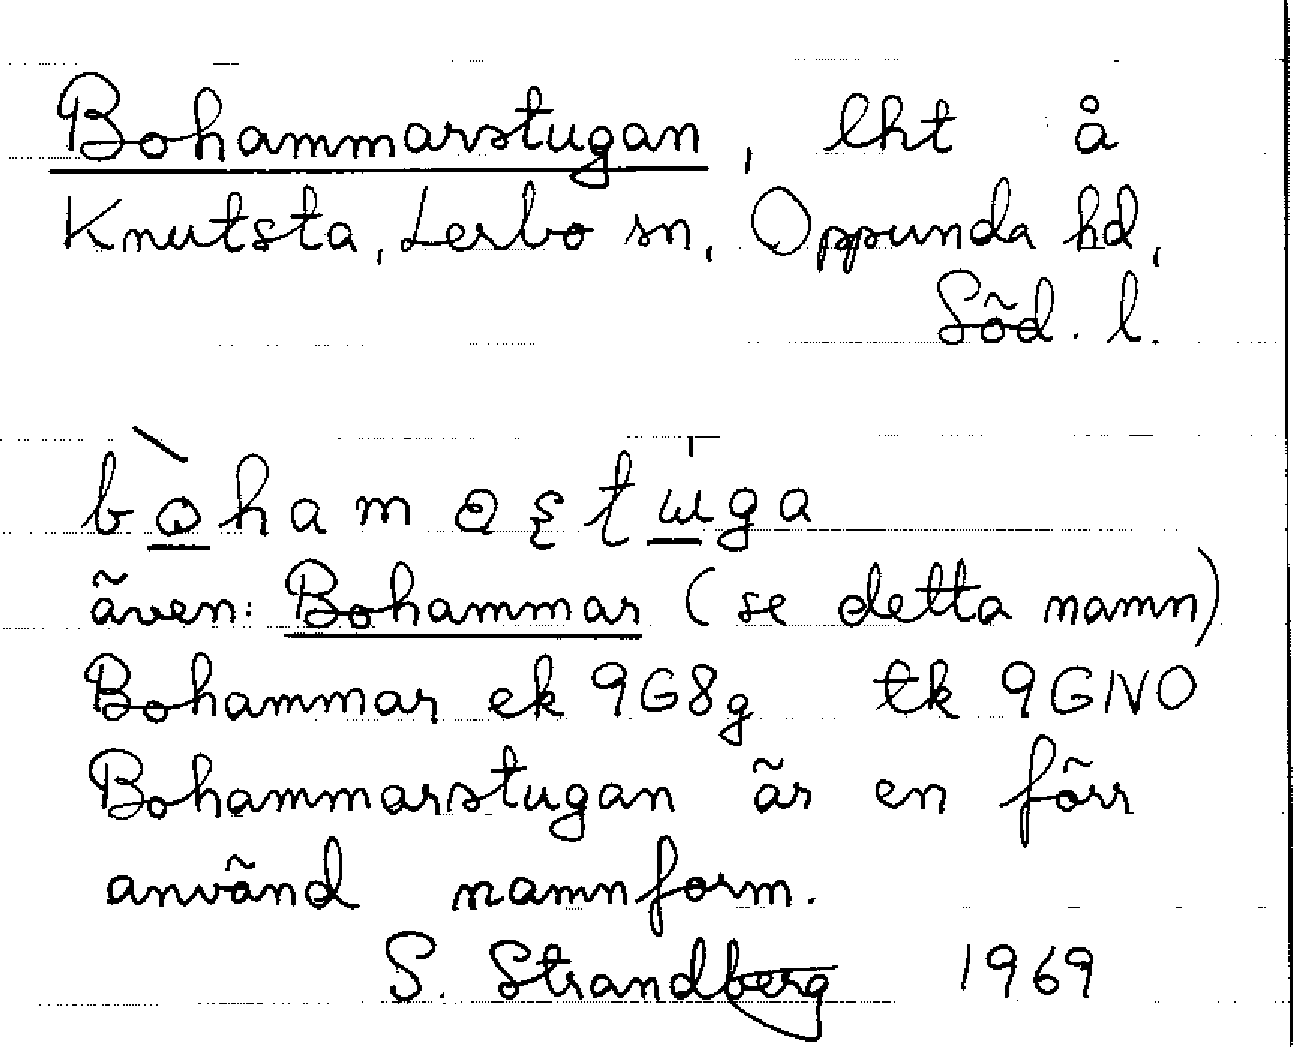 Bohammarstugan, lht å
Knutsta, Lerbo sn, Oppunda hd,
Söd. l.
även: Bohammar (se detta namn)
Bohammar ek 9G8g tk 9GNO
Bohammarstugan är en förr
använd namnform.
S. Strandberg 1969